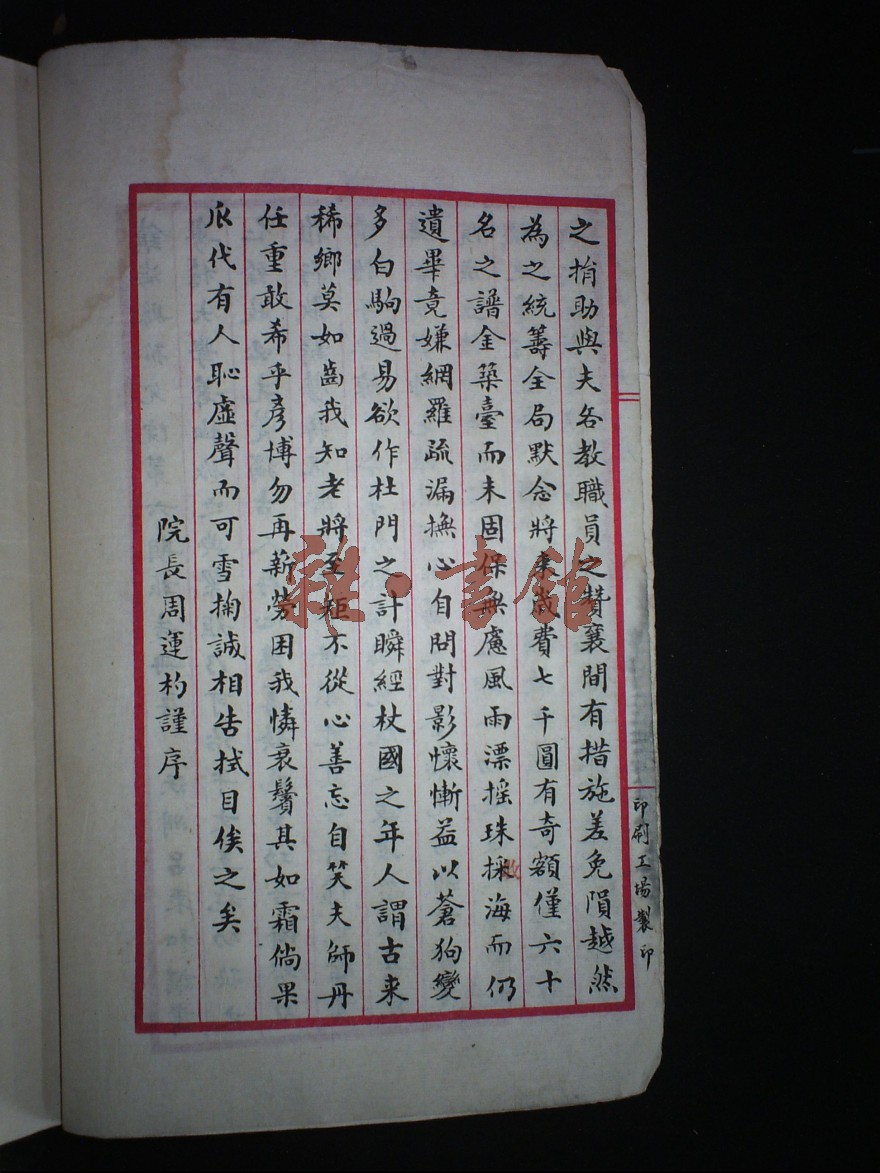 之捐助與夫各教職員之贊襄間有措施差免隕越然
為之統籌全局默念將來歲費七千圓有奇額僅六十
名之譜金築臺而未固保無慮風雨漂搖珠採海而仍
遺畢竟嫌網羅疏漏撫心自問對影懷慚益以蒼狗變
多白駒過易欲作杜門之計瞬經杖國之年人謂古来
稀鄉莫如齒我知老將至矩不從心善忘自笑夫師丹
任重敢希乎彥博勿再薪勞困我憐衰鬢其如霜倘果
瓜代有人恥虛聲而可雪掬誠相告拭目俟之矣
院長周運杓謹序
印刷工場製印
雜·書館